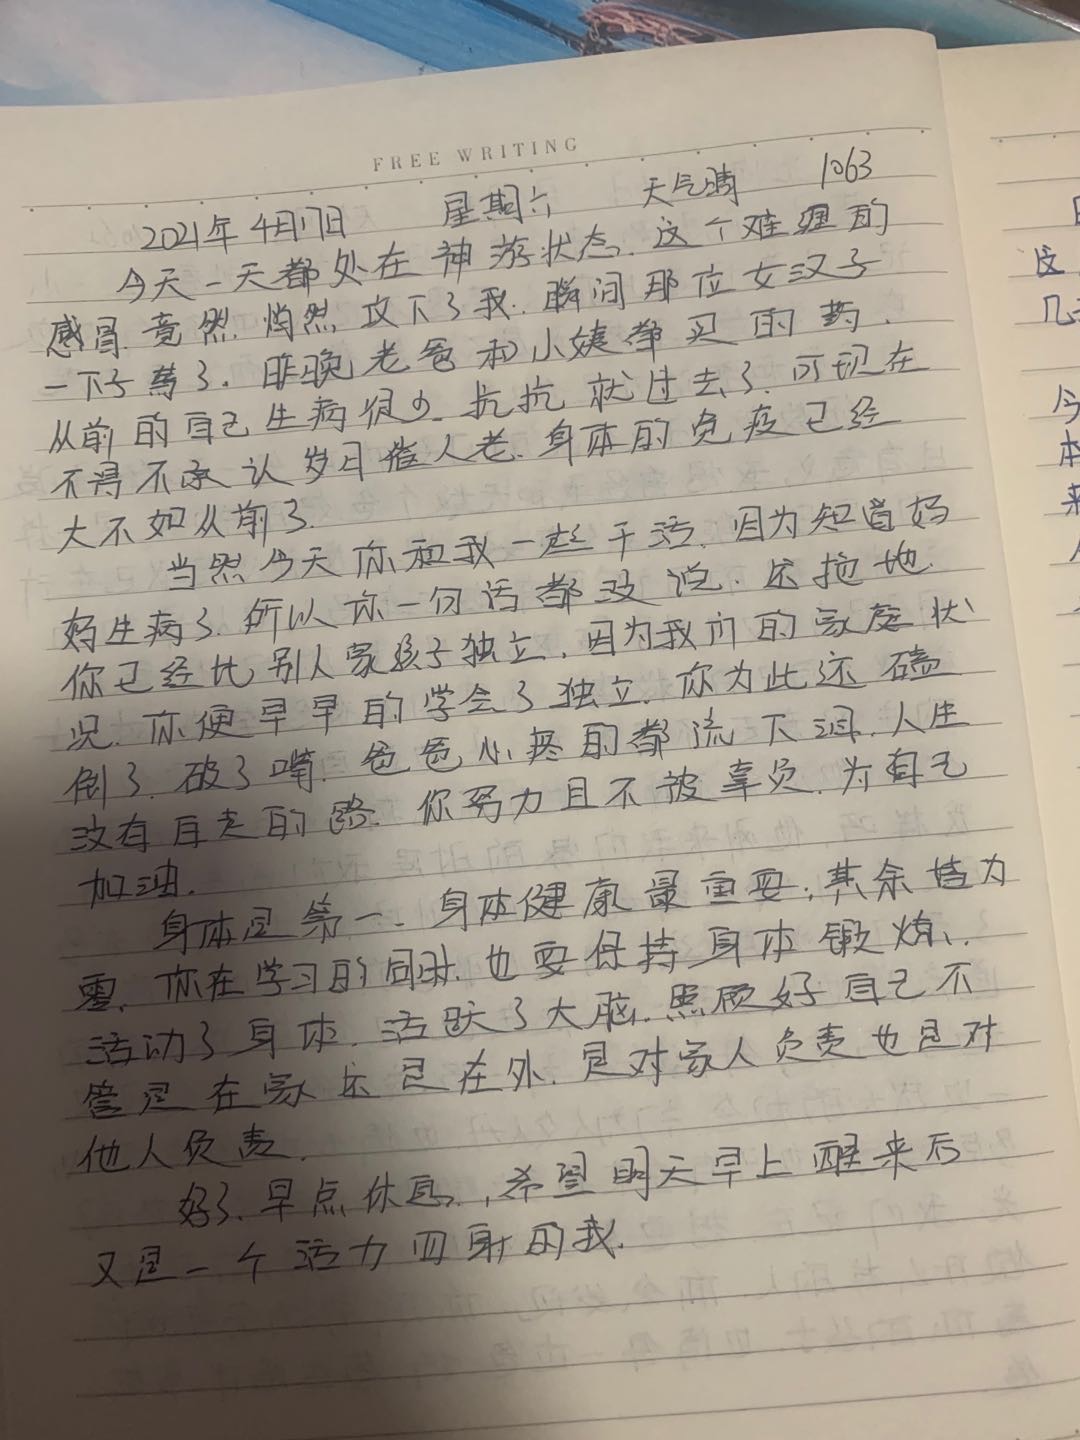 FREE WRITING
2021年4月17日 星期六 天气晴 1063
今天一天都处在神游状态.这个难缠的
感冒竟然灼然攻下了我.瞬间那位女汉子
一下子蔫了.昨晚老爸和小姨都买的药.
从前的自己生病很少.抗抗就过去了.可现在
不得不承认岁月催人老.身体的免疫已经
大不如从前了.
当然今天你和我一些干活.因为知道妈
妈生病了.所以你一句话都没说.还拖地.
你已经比别人家孩子独立.因为我们的家庭状
况.你便早早的学会了独立.你为此还磕
倒了.破了嘴.爸爸心疼的都流下泪.人生
没有白走的路.你努力且不被辜负.为自己
加油.
身体是第一.身体健康最重要;其余皆为
零.你在学习的同时.也要保持身体锻炼.
活动了身体.活跃了大脑.照顾好自己不
管是在家还是在外.是对家人负责也是对
他人负责.
好了.早点休息.希望明天早上醒来后
又是一个活力四射的我.
这
几
今
本
来